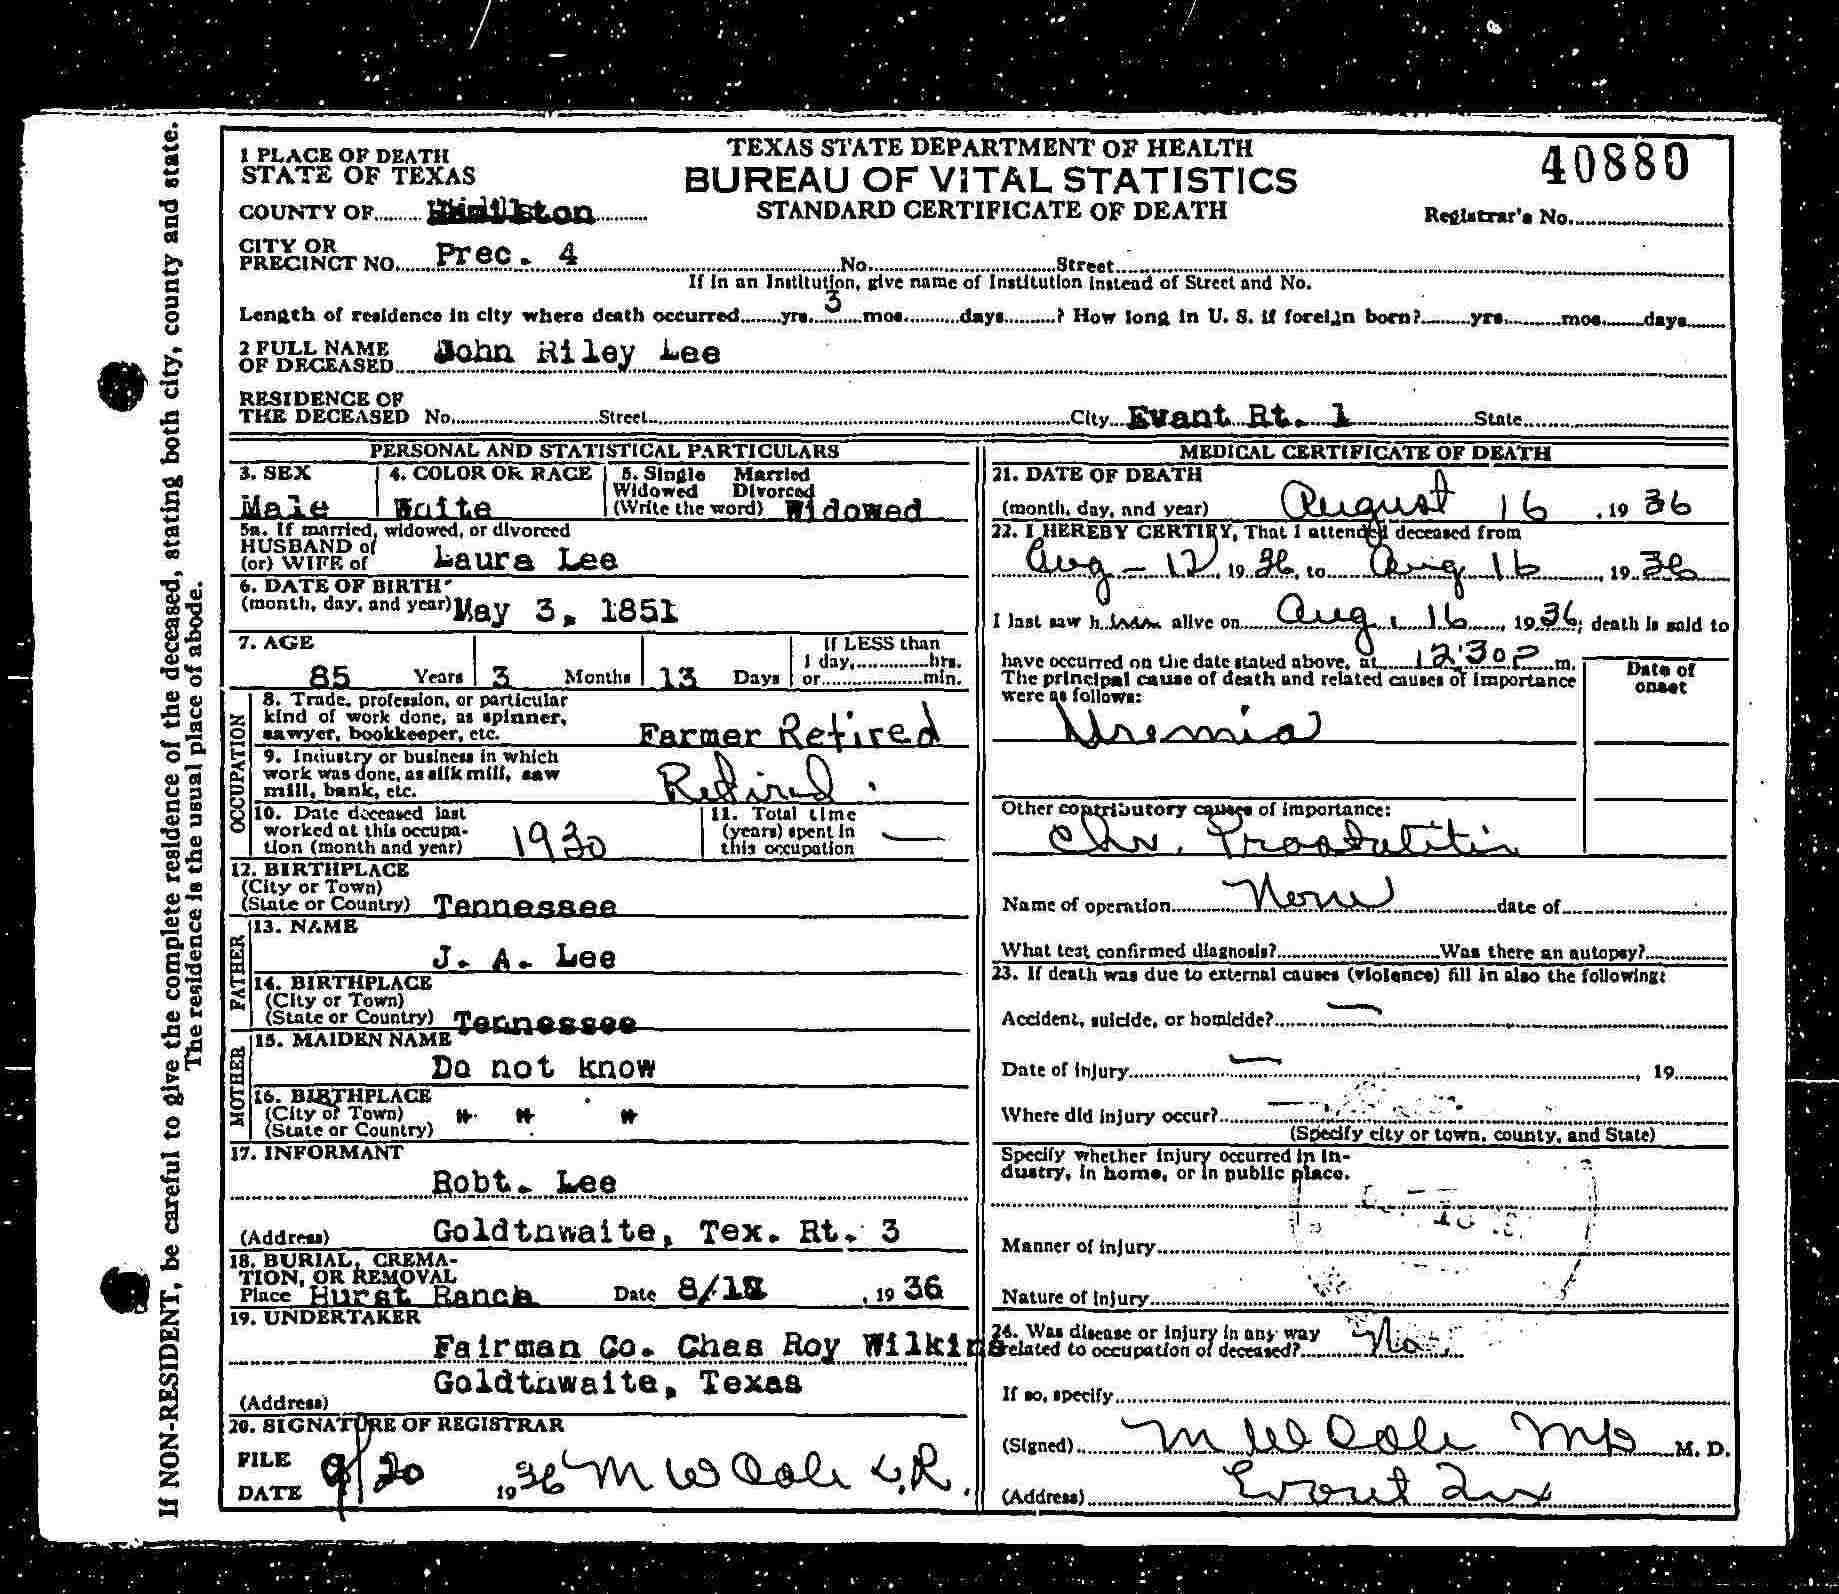 If NON-RESIDENT, be careful to give the complete residence of the deceased, stating both city, county and state.
The residence is the usual place of abode.
TEXAS STATE DEPARTMENT OF HEALTH
BUREAU OF VITAL STATISTICS
STANDARD CERTIFICATE OF DEATH
40880
Registrar's No.
1 PLACE OF DEATH
STATE OF TEXAS
COUNTY OF Hamilton
CITY OR
PRECINCT NO. Prec. 4 No. Street
If in an Institution, give name of Institution instead of Street and No.
Length of residence in city where death occurred yrs. 3 mos. days ? How long in U. S. if foreign born? yrs. mos. days
2 FULL NAME
OF DECEASED John Riley Lee
RESIDENCE OF
THE DECEASED No. Street City Evant Rt. 1 State
PERSONAL AND STATISTICAL PARTICULARS
3. SEX
Male
4. COLOR OR RACE
White
5. Single Married
Widowed Divorced
(Write the word) Widowed
5a. If married, widowed, or divorced
HUSBAND of
(or) WIFE of Laura Lee
6. DATE OF BIRTH
(month, day, and year) May 3, 1851
7. AGE
85 Years 3 Months 13 Days
If LESS than
1 day, hrs.
or min.
OCCUPATION
8. Trade, profession, or particular
kind of work done, as spinner,
sawyer, bookkeeper, etc. Farmer Retired
9. Industry or business in which
work was done, as silk mill, saw
mill, bank, etc. Retired
10. Date deceased last
worked at this occupa-
tion (month and year) 1930
11. Total time
(years) spent in
this occupation —
12. BIRTHPLACE
(City or Town)
(State or Country) Tennessee
FATHER
13. NAME
J. A. Lee
14. BIRTHPLACE
(City or Town)
(State or Country) Tennessee
MOTHER
15. MAIDEN NAME
Do not know
16. BIRTHPLACE
(City or Town) " " "
(State or Country)
17. INFORMANT
Robt. Lee
(Address) Goldthwaite, Tex. Rt. 3
18. BURIAL, CREMA-
TION, OR REMOVAL
Place Hurst Ranch Date 8/18, 1936
19. UNDERTAKER
Fairman Co. Chas Roy Wilkins
Goldthwaite, Texas
(Address)
20. SIGNATURE OF REGISTRAR
FILE
DATE 9/20 1936 M W Cole L.R.
MEDICAL CERTIFICATE OF DEATH
21. DATE OF DEATH
(month, day, and year) August 16, 1936
22. I HEREBY CERTIFY, That I attended deceased from
Aug - 12, 1936, to Aug 16, 1936
I last saw him alive on Aug. 16, 1936; death is said to
have occurred on the date stated above, at 12:30 P m.
The principal cause of death and related causes of importance
were as follows:
Date of
onset
Uremia
Other contributory causes of importance:
Chr. Prostatitis
Name of operation None date of
What test confirmed diagnosis? Was there an autopsy?
23. If death was due to external causes (violence) fill in also the following:
Accident, suicide, or homicide? —
Date of injury —, 19
Where did injury occur? —
(Specify city or town, county, and State)
Specify whether injury occurred in in-
dustry, in home, or in public place.
Manner of injury
Nature of injury
24. Was disease or injury in any way
related to occupation of deceased? No.
If so, specify
(Signed) M W Cole MD M. D.
(Address) Evant Tex